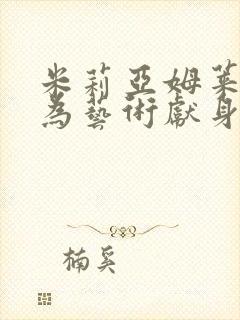 米莉亞姆萊
為藝術獻身
楠奚